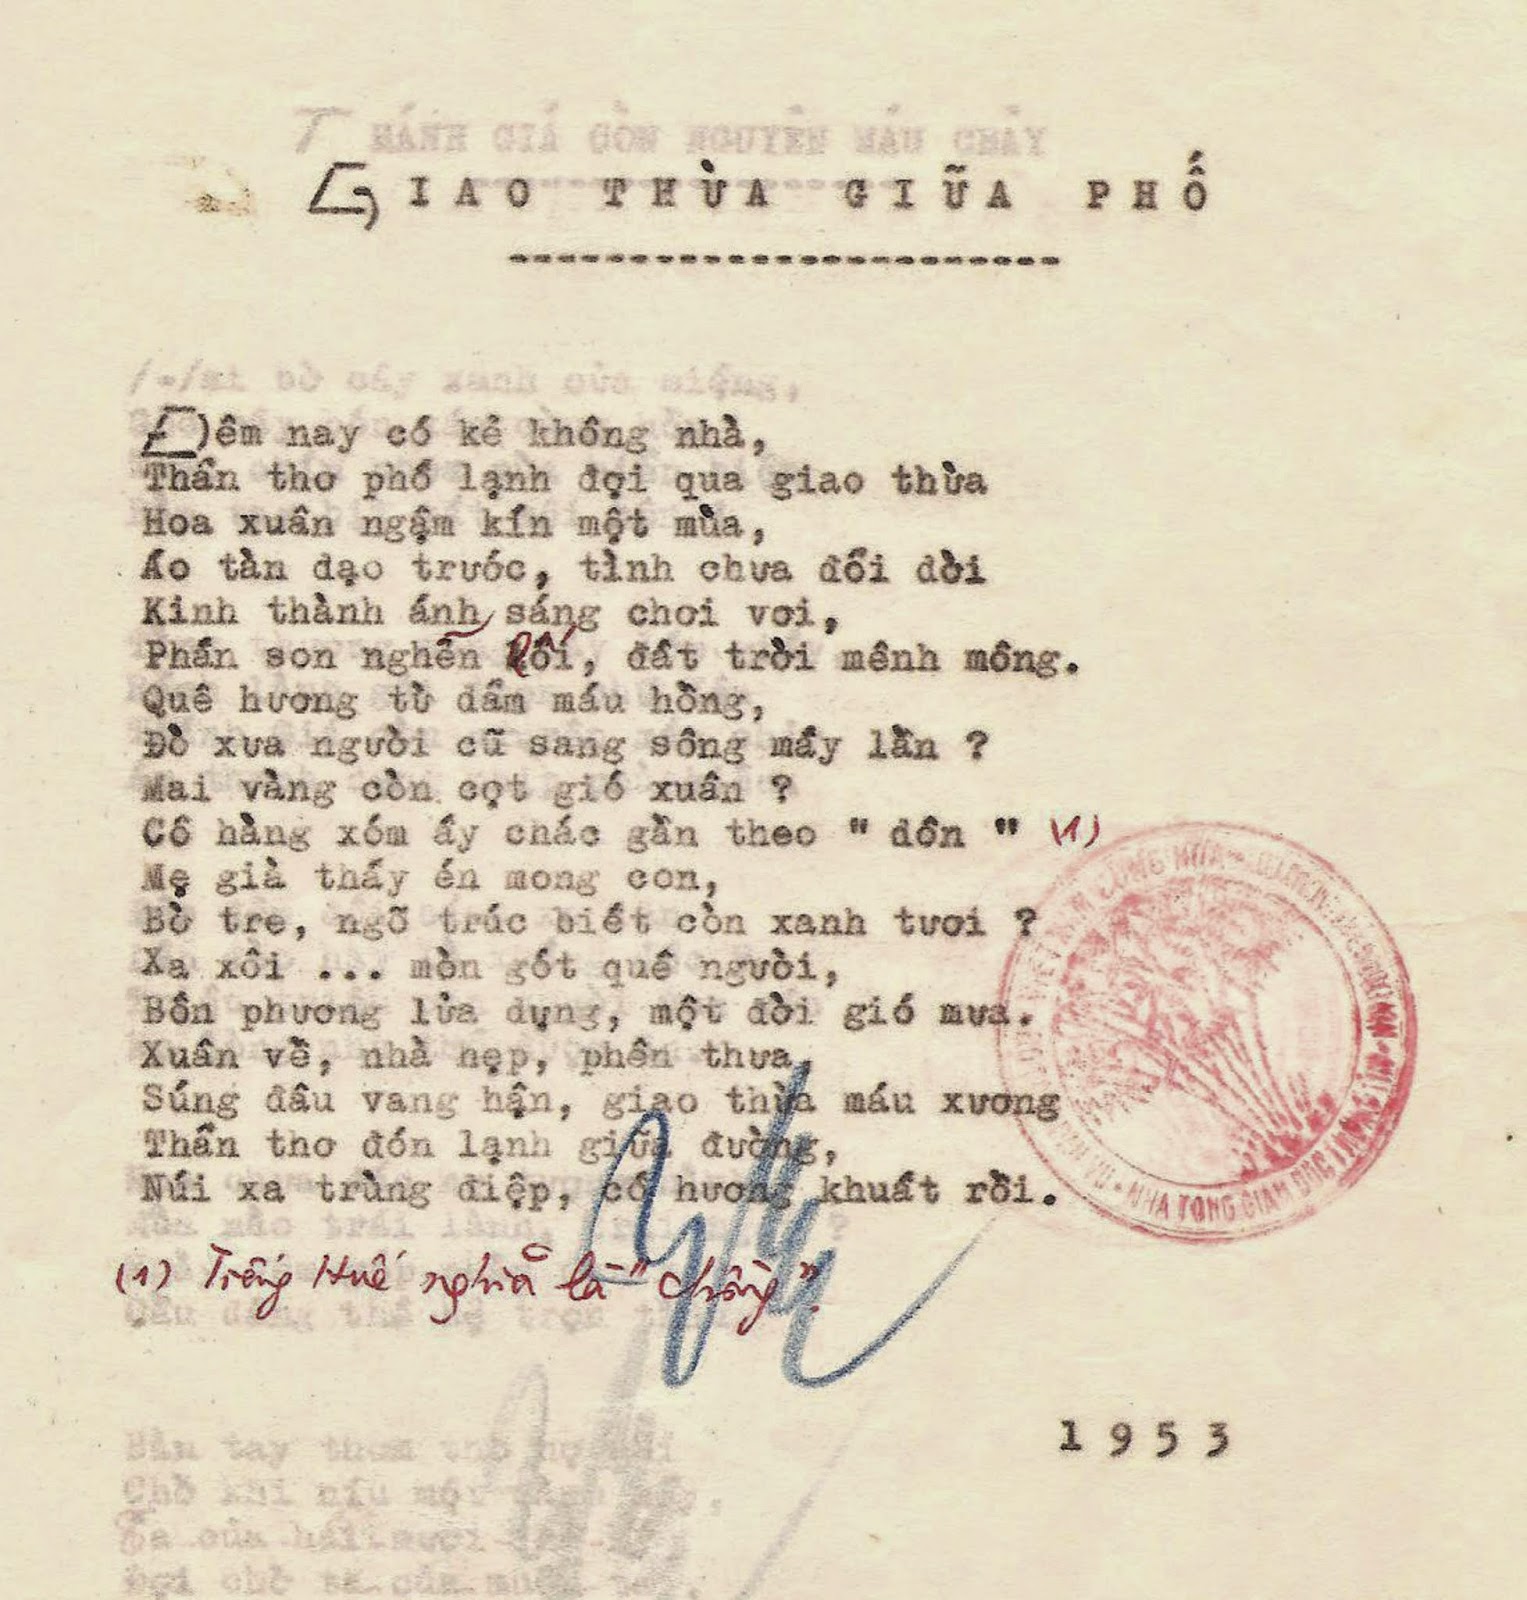 MÁNH GIÁ CÒN NGUYÊN MÁU CHẢY
GIAO THỪA GIỮA PHỐ
Đêm nay có kẻ không nhà,
Thẩn thơ phố lạnh đợi qua giao thừa
Hoa xuân ngậm kín một mùa,
Áo tàn dạo trước, tình chưa đổi dời
Kinh thành ánh sáng chơi vơi,
Phấn son nghẽn lối, đất trời mênh mông.
Quê hương từ dấm máu hồng,
Đò xưa người cũ sang sông mấy lần ?
Mai vàng còn cợt gió xuân ?
Cô hàng xóm ấy chắc gần theo " dôn " (1)
Mẹ già thấy én mong con,
Bờ tre, ngõ trúc biết còn xanh tươi ?
Xa xôi ... mòn gót quê người,
Bốn phương lửa dựng, một đời gió mưa.
Xuân về, nhà hẹp, phên thưa,
Súng đâu vang hận, giao thừa máu xương
Thẩn thơ đón lạnh giữa đường,
Núi xa trùng điệp, cố hương khuất rồi.
(1) Tiếng Huế nghĩa là "chồng".
1953
NHA TỔNG GIÁM ĐỐC